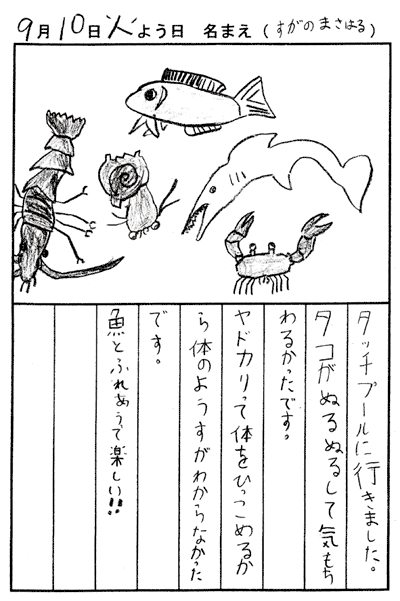 9月10日火よう日 名まえ(すがのまさはる)
タッチプールに行きました。
タコがぬるぬるして気もち
わるかったです。
ヤドカリって体をひっこめるか
ら体のようすがわからなかった
です。
魚とふれあうで楽しい!!